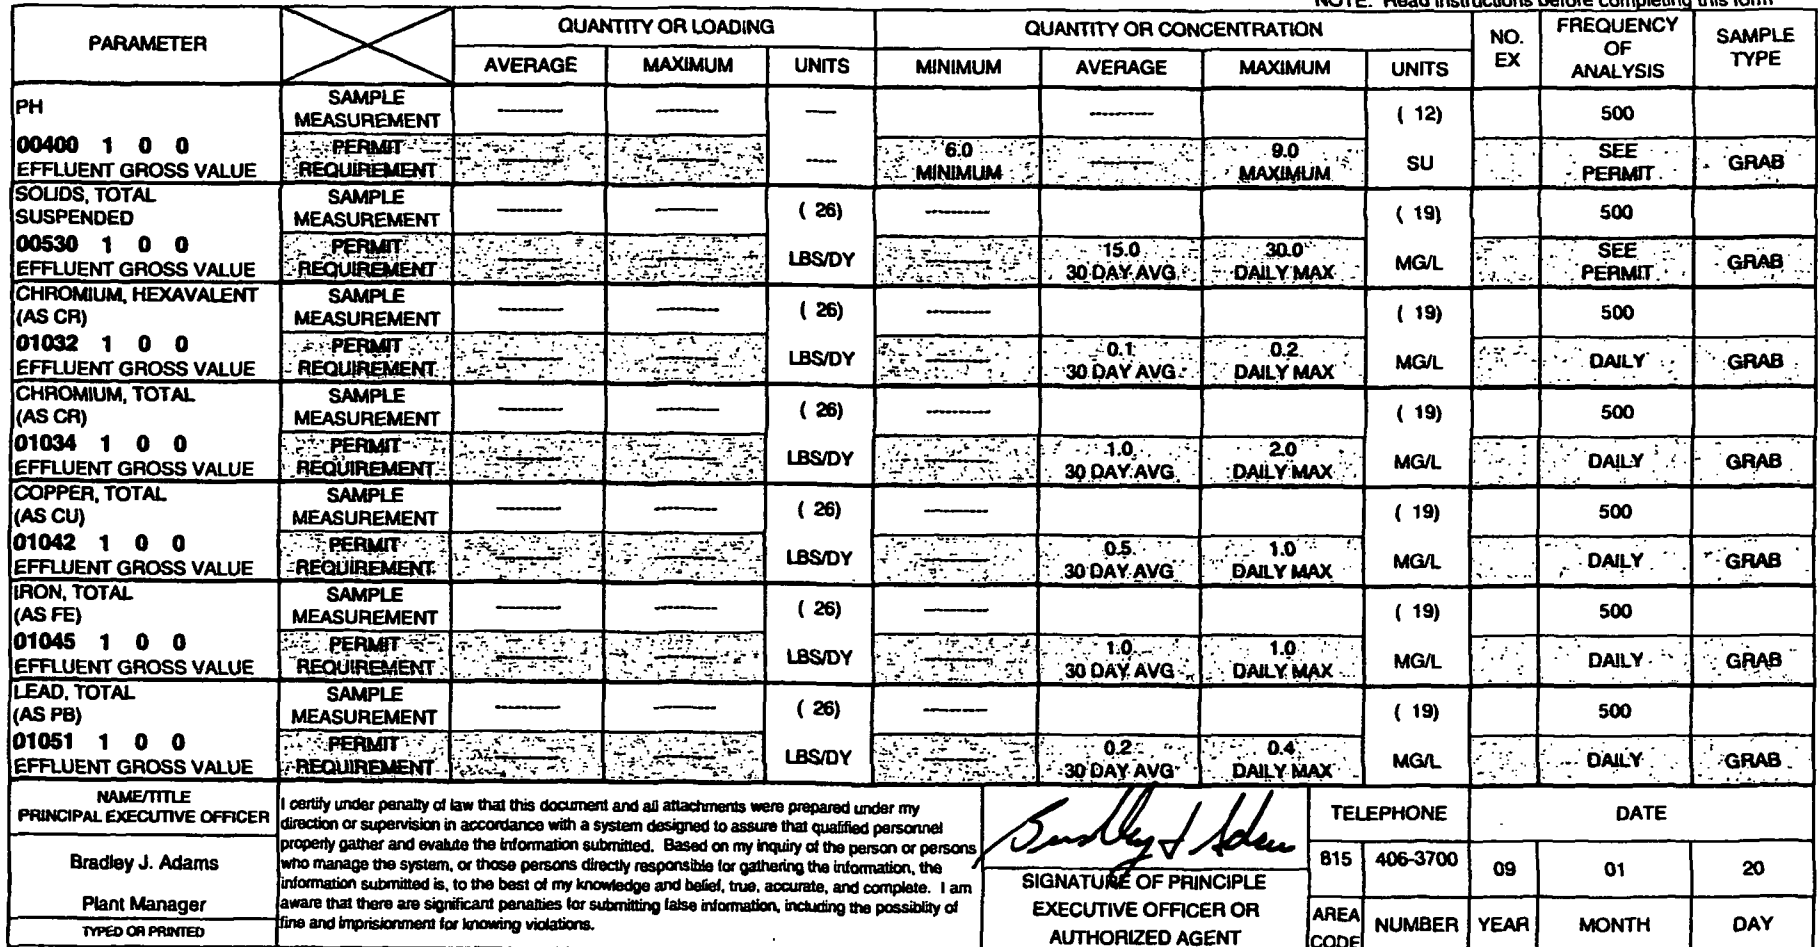 NOTE: Read instructions before completing this form
PARAMETER
QUANTITY OR LOADING
QUANTITY OR CONCENTRATION
NO. EX
FREQUENCY OF ANALYSIS
SAMPLE TYPE
AVERAGE MAXIMUM UNITS MINIMUM AVERAGE MAXIMUM UNITS
PH
SAMPLE MEASUREMENT -------- -------- ---- -------- ( 12) 500
00400 1 0 0
EFFLUENT GROSS VALUE
PERMIT REQUIREMENT -------- -------- ---- 6.0 MINIMUM -------- 9.0 MAXIMUM SU SEE PERMIT GRAB
SOLIDS, TOTAL
SUSPENDED
SAMPLE MEASUREMENT -------- -------- ( 26) -------- ( 19) 500
00530 1 0 0
EFFLUENT GROSS VALUE
PERMIT REQUIREMENT -------- -------- LBS/DY -------- 15.0 30 DAY AVG 30.0 DAILY MAX MG/L SEE PERMIT GRAB
CHROMIUM, HEXAVALENT
(AS CR)
SAMPLE MEASUREMENT -------- -------- ( 26) -------- ( 19) 500
01032 1 0 0
EFFLUENT GROSS VALUE
PERMIT REQUIREMENT -------- -------- LBS/DY -------- 0.1 30 DAY AVG 0.2 DAILY MAX MG/L DAILY GRAB
CHROMIUM, TOTAL
(AS CR)
SAMPLE MEASUREMENT -------- -------- ( 26) -------- ( 19) 500
01034 1 0 0
EFFLUENT GROSS VALUE
PERMIT REQUIREMENT -------- -------- LBS/DY -------- 1.0 30 DAY AVG 2.0 DAILY MAX MG/L DAILY GRAB
COPPER, TOTAL
(AS CU)
SAMPLE MEASUREMENT -------- -------- ( 26) -------- ( 19) 500
01042 1 0 0
EFFLUENT GROSS VALUE
PERMIT REQUIREMENT -------- -------- LBS/DY -------- 0.5 30 DAY AVG 1.0 DAILY MAX MG/L DAILY GRAB
IRON, TOTAL
(AS FE)
SAMPLE MEASUREMENT -------- -------- ( 26) -------- ( 19) 500
01045 1 0 0
EFFLUENT GROSS VALUE
PERMIT REQUIREMENT -------- -------- LBS/DY -------- 1.0 30 DAY AVG 1.0 DAILY MAX MG/L DAILY GRAB
LEAD, TOTAL
(AS PB)
SAMPLE MEASUREMENT -------- -------- ( 26) -------- ( 19) 500
01051 1 0 0
EFFLUENT GROSS VALUE
PERMIT REQUIREMENT -------- -------- LBS/DY -------- 0.2 30 DAY AVG 0.4 DAILY MAX MG/L DAILY GRAB
NAME/TITLE
PRINCIPAL EXECUTIVE OFFICER
Bradley J. Adams
Plant Manager
TYPED OR PRINTED
I certify under penalty of law that this document and all attachments were prepared under my
direction or supervision in accordance with a system designed to assure that qualified personnel
properly gather and evalute the information submitted. Based on my inquiry of the person or persons
who manage the system, or those persons directly responsible for gathering the information, the
information submitted is, to the best of my knowledge and belief, true, accurate, and complete. I am
aware that there are significant penalties for submitting false information, including the possiblity of
fine and imprisionment for knowing violations.
Bradley J Adams
SIGNATURE OF PRINCIPLE
EXECUTIVE OFFICER OR
AUTHORIZED AGENT
TELEPHONE
815 406-3700
AREA CODE NUMBER
DATE
09 01 20
YEAR MONTH DAY